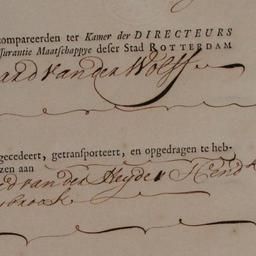 compareerden ter Kamer der DIRECTEURS
ssurantie Maatschappye deser Stad ROTTERDAM
ard van der Wolff
gecedeert, getransporteert, en opgedragen te heb-
zen aan
rd van der Heyde Hend
sbroek